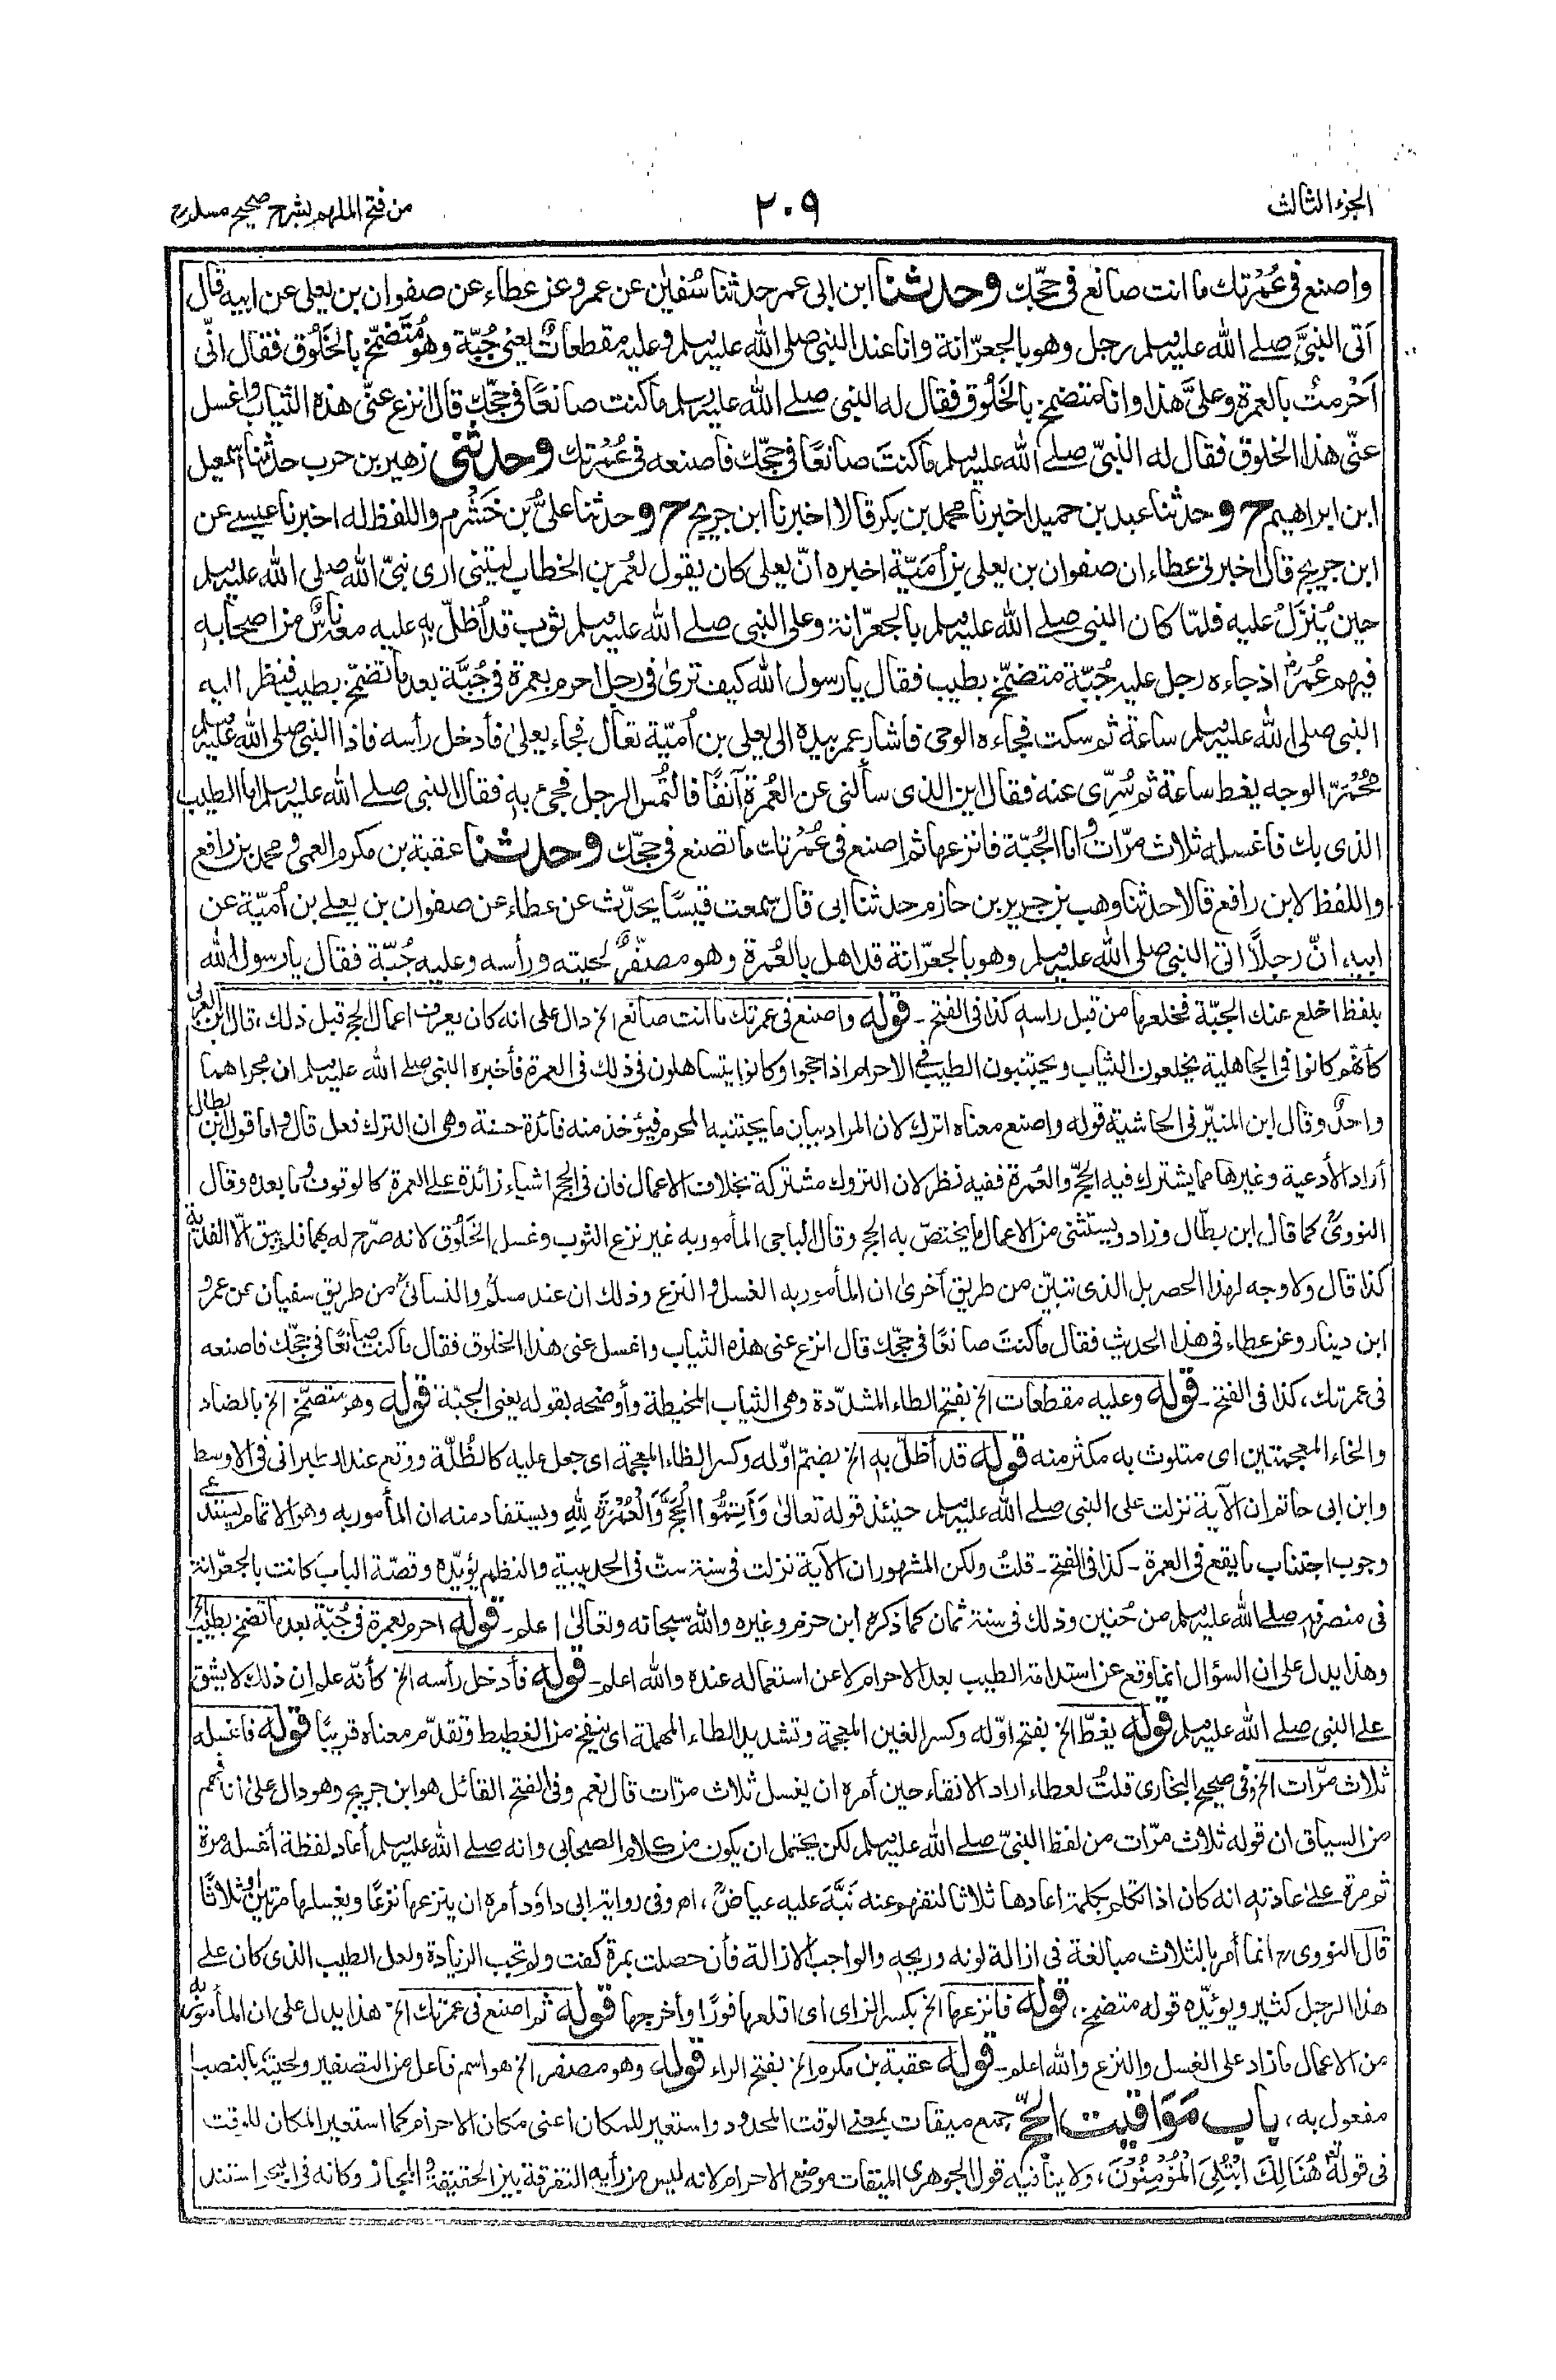 الجزء الثالث
٢٠٩
من فتح الملهم بشرح صحيح مسلم
واصنع فى عُمْرتك ما انت صانع فى حجّك وحدثنا ابن ابى عمر حدثنا سُفيٰن عن عمرو عن عطاء عن صفوان بن يعلى عن ابيه قال
اَتى النبىَّ صلى الله عليه وسلم رجل وهو بالجعرّانة وانا عند النبى صلى الله عليه وسلم وعليه مقطعاتٌ يعنى جُبّة وهو مُتَضمّخ بالخَلُوق فقال انّى
اَحْرمتُ بالعمرة وعلىَّ هذا وانا متضمخ بالخَلُوق فقال له النبى صلى الله عليه وسلم ما كنت صانعًا فى حجّك قال انزع عنّى هذه الثياب واغسل
عنّى هذا الخلوق فقال له النبىّ صلى الله عليه وسلم ما كنتَ صانعًا فى حجّك فاصنعه فى عُمْرتك وحدثنى زهير بن حرب حدثنا اسمٰعيل
ابن ابراهيم ح وحدثنا عبد بن حميد اخبرنا محمد بن بكر قالا اخبرنا ابن جريج ح وحدثنا علىُّ بن خَشْرم واللفظ له اخبرنا عيسى عن
ابن جريج قال اخبرنى عطاء ان صفوان بن يعلى بن اُمَيّة اخبره انّ يعلى كان يقول لعُمر بن الخطاب ليتنى ارى نبىّ الله صلى الله عليه وسلم
حين يُنْزَلُ عليه فلمّا كان النبى صلى الله عليه وسلم بالجعرّانة وعلى النبى صلى الله عليه وسلم ثوب قد اُظلّ بهٖ عليه معه ناسٌ من اصحابه
فيهم عُمَرُ اذ جاءه رجل عليه جُبّة متضمّخ بطيب فقال يا رسول الله كيف ترىٰ فى رجل احرم بعمرة فى جُبَّة بعد ما تضمّخ بطيب فنظر اليه
النبى صلى الله عليه وسلم ساعة ثم سكت فجاءه الوحى فاشار عمر بيده الى يعلى بن اُميّة تعال فجاء يعلىٰ فأدخل رأسه فاذا النبى صلى الله عليه وسلم
مُحْمَرّ الوجه يغط ساعة ثم سُرّى عنه فقال اين الذى سألنى عن العُمرة آنفًا فالتُمس الرجل فجئ بهٖ فقال النبى صلى الله عليه وسلم اما الطيب
الذى بك فاغسله ثلاث مرّات واما الجُبّة فانزعها ثم اصنع فى عُمْرتك ما تصنع فى حجّك وحدثنا عقبة بن مكرم العمى ومحمد بن رافع
واللفظ لابن رافع قالا حدثنا وهب بن جرير بن حازم حدثنا ابى قال سمعت قيسًا يحدّث عن عطاء عن صفوان بن يعلى بن اُميّة عن
ابيه انّ رجلاً اتى النبى صلى الله عليه وسلم وهو بالجعرّانة قد اهل بالعُمرة وهو مصفّرٌ لحيته ورأسه وعليه جُبّة فقال يا رسول الله
بلفظ اخلع عنك الجبّة فخلعها من قبل راسهٖ كذا فى الفتح - قوله واصنع فى عمرتك ما انت صانع الخ دال على انه كان يعرف اعمال الحج قبل ذلك، قال ابن العربى
كأنهم كانوا فى الجاهلية يخلعون الثياب ويجتنبون الطيب فى الاحرام اذا حجوا وكانوا يتساهلون فى ذلك فى العمرة فأخبره النبى صلى الله عليه وسلم ان مجراهما
واحدٌ وقال ابن المنيّر فى الحاشية قوله واصنع معناه اترك لان المراد بيان ما يجتنبه المحرم فيؤخذ منه فائدة حسنة وهى ان الترك فعل قال واما قول ابن بطال
أراد الأدعية وغيرها مما يشترك فيه الحجّ والعُمرة ففيه نظر لان التروك مشتركة بخلاف الاعمال فان فى الحج اشياء زائدة على العمرة كالوقوف وما بعده وقال
النووىُّ كما قال ابن بطّال وزاد ويستثنى من الاعمال ما يختصّ به الحج وقال الباجى المأمور به غير نزع الثوب وغسل الخَلُوق لانه صرّح له بهما فلم يبق الّا الفدية
كذا قال ولا وجه لهذا الحصر بل الذى تبيّن من طريق أخرىٰ ان المأمور به الغسل والنزع وذلك ان عند مسلمٌ والنسائىُّ من طريق سفيان عن عمرو
ابن دينار وعن عطاء فى هذا الحديث فقال ما كنتَ صانعًا فى حجّك قال انزع عنى هذه الثياب واغسل عنى هذا الخلوق فقال ما كنت صانعًا فى حجّك فاصنعه
فى عمرتك، كذا فى الفتح - قوله وعليه مقطعات الخ بفتح الطاء المشدّدة وهى الثياب المخيطة وأوضحه بقوله يعنى الجبّة قوله وهو متضمّخ الخ بالضاد
والخاء المعجمتين اى متلوث به مكثر منه قوله قد أظلّ بهٖ الخ بضم اوّله وكسر الظاء المعجمة اى جعل عليه كالظُلّة ووقع عند الطبرانى فى الاوسط
وابن ابى حاتم ان الآية نزلت على النبى صلى الله عليه وسلم حينئذ قوله تعالىٰ وَاَتِمُّوا الْحَجَّ وَالْعُمْرَةَ لِلّٰهِ ويستفاد منه ان المأمور به وهو الاتمام يستدعى
وجوب اجتناب ما يقع فى العمرة - كذا فى الفتح - قلتُ ولكن المشهور ان الآية نزلت فى سنة ستّ فى الحديبية والنظم يؤيّده وقصّة الباب كانت بالجعرّانة
فى منصرفهٖ صلى الله عليه وسلم من حُنين وذلك فى سنة ثمان كما ذكره ابن حزم وغيره والله سبحانه وتعالىٰ اعلم - قوله احرم بعمرة فى جُبّة بعد ما تضمخ بطيب الخ
وهذا يدل على ان السؤال انما وقع عن استدامة الطيب بعد الاحرام لا عن استعماله عنده والله اعلم - قوله فأدخل رأسه الخ كأنّه علم ان ذلك لا يشق
على النبى صلى الله عليه وسلم قوله يغطّ الخ بفتح اوّله وكسر الغين المعجمة وتشديد الطاء المهملة اى ينفخ من الغطيط وتقدّم معناه قريبًا قوله فاغسله
ثلاث مرّات الخ وفى صحيح البخارى قلتُ لعطاء اراد الانقاء حين أمره ان يغسل ثلاث مرّات قال نعم وفى الفتح القائل هو ابن جريج وهو دال علىٰ أنه فهم
من السياق ان قوله ثلاث مرّات من لفظ النبىّ صلى الله عليه وسلم لكن يحتمل ان يكون من كلام الصحابى وانه صلى الله عليه وسلم أعاد لفظة أغسله مرة
ثم مرة على عادتهٖ انه كان اذا تكلم بكلمة اعادها ثلاثا لتفهم عنه نَبَّهَ عليه عياضٌ، اھ وفى رواية ابى داوٗد أمره ان ينزعها نزعًا ويغسلها مرتين أو ثلاثًا
قال النووىؒ انما أمر بالثلاث مبالغة فى ازالة لونه وريحهٖ والواجب الازالة فأن حصلت بمرة كفت ولم تجب الزيادة ولعل الطيب الذى كان على
هذا الرجل كثير ويؤيّده قوله متضمخ، قوله فانزعها الخ بكسر الزاى اى اقلعها فورًا وأخرجها قوله ثم اصنع فى عمرتك الخ هذا يدل على ان المأمور به
من الاعمال ما زاد على الغسل والنزع والله اعلم - قوله عقبة بن مكرم الخ بفتح الراء قوله وهو مصفر الخ هو اسم فاعل من التصفير ولحيتَهٗ بالنصب
مفعول به، باب مَوَاقيت الحجّ جمع ميقات بمعنى الوقت المحدود واستعير للمكان اعنى مكان الاحرام كما استعير المكان للوقت
فى قولهٖ هُنَالِكَ ابْتُلِىَ الْمُؤْمِنُوْنَ، ولا ينافيه قول الجوهرى الميقات موضع الاحرام لانه ليس من رأيه التفرقة بين الحقيقة والمجاز وكانه فى البحر استند